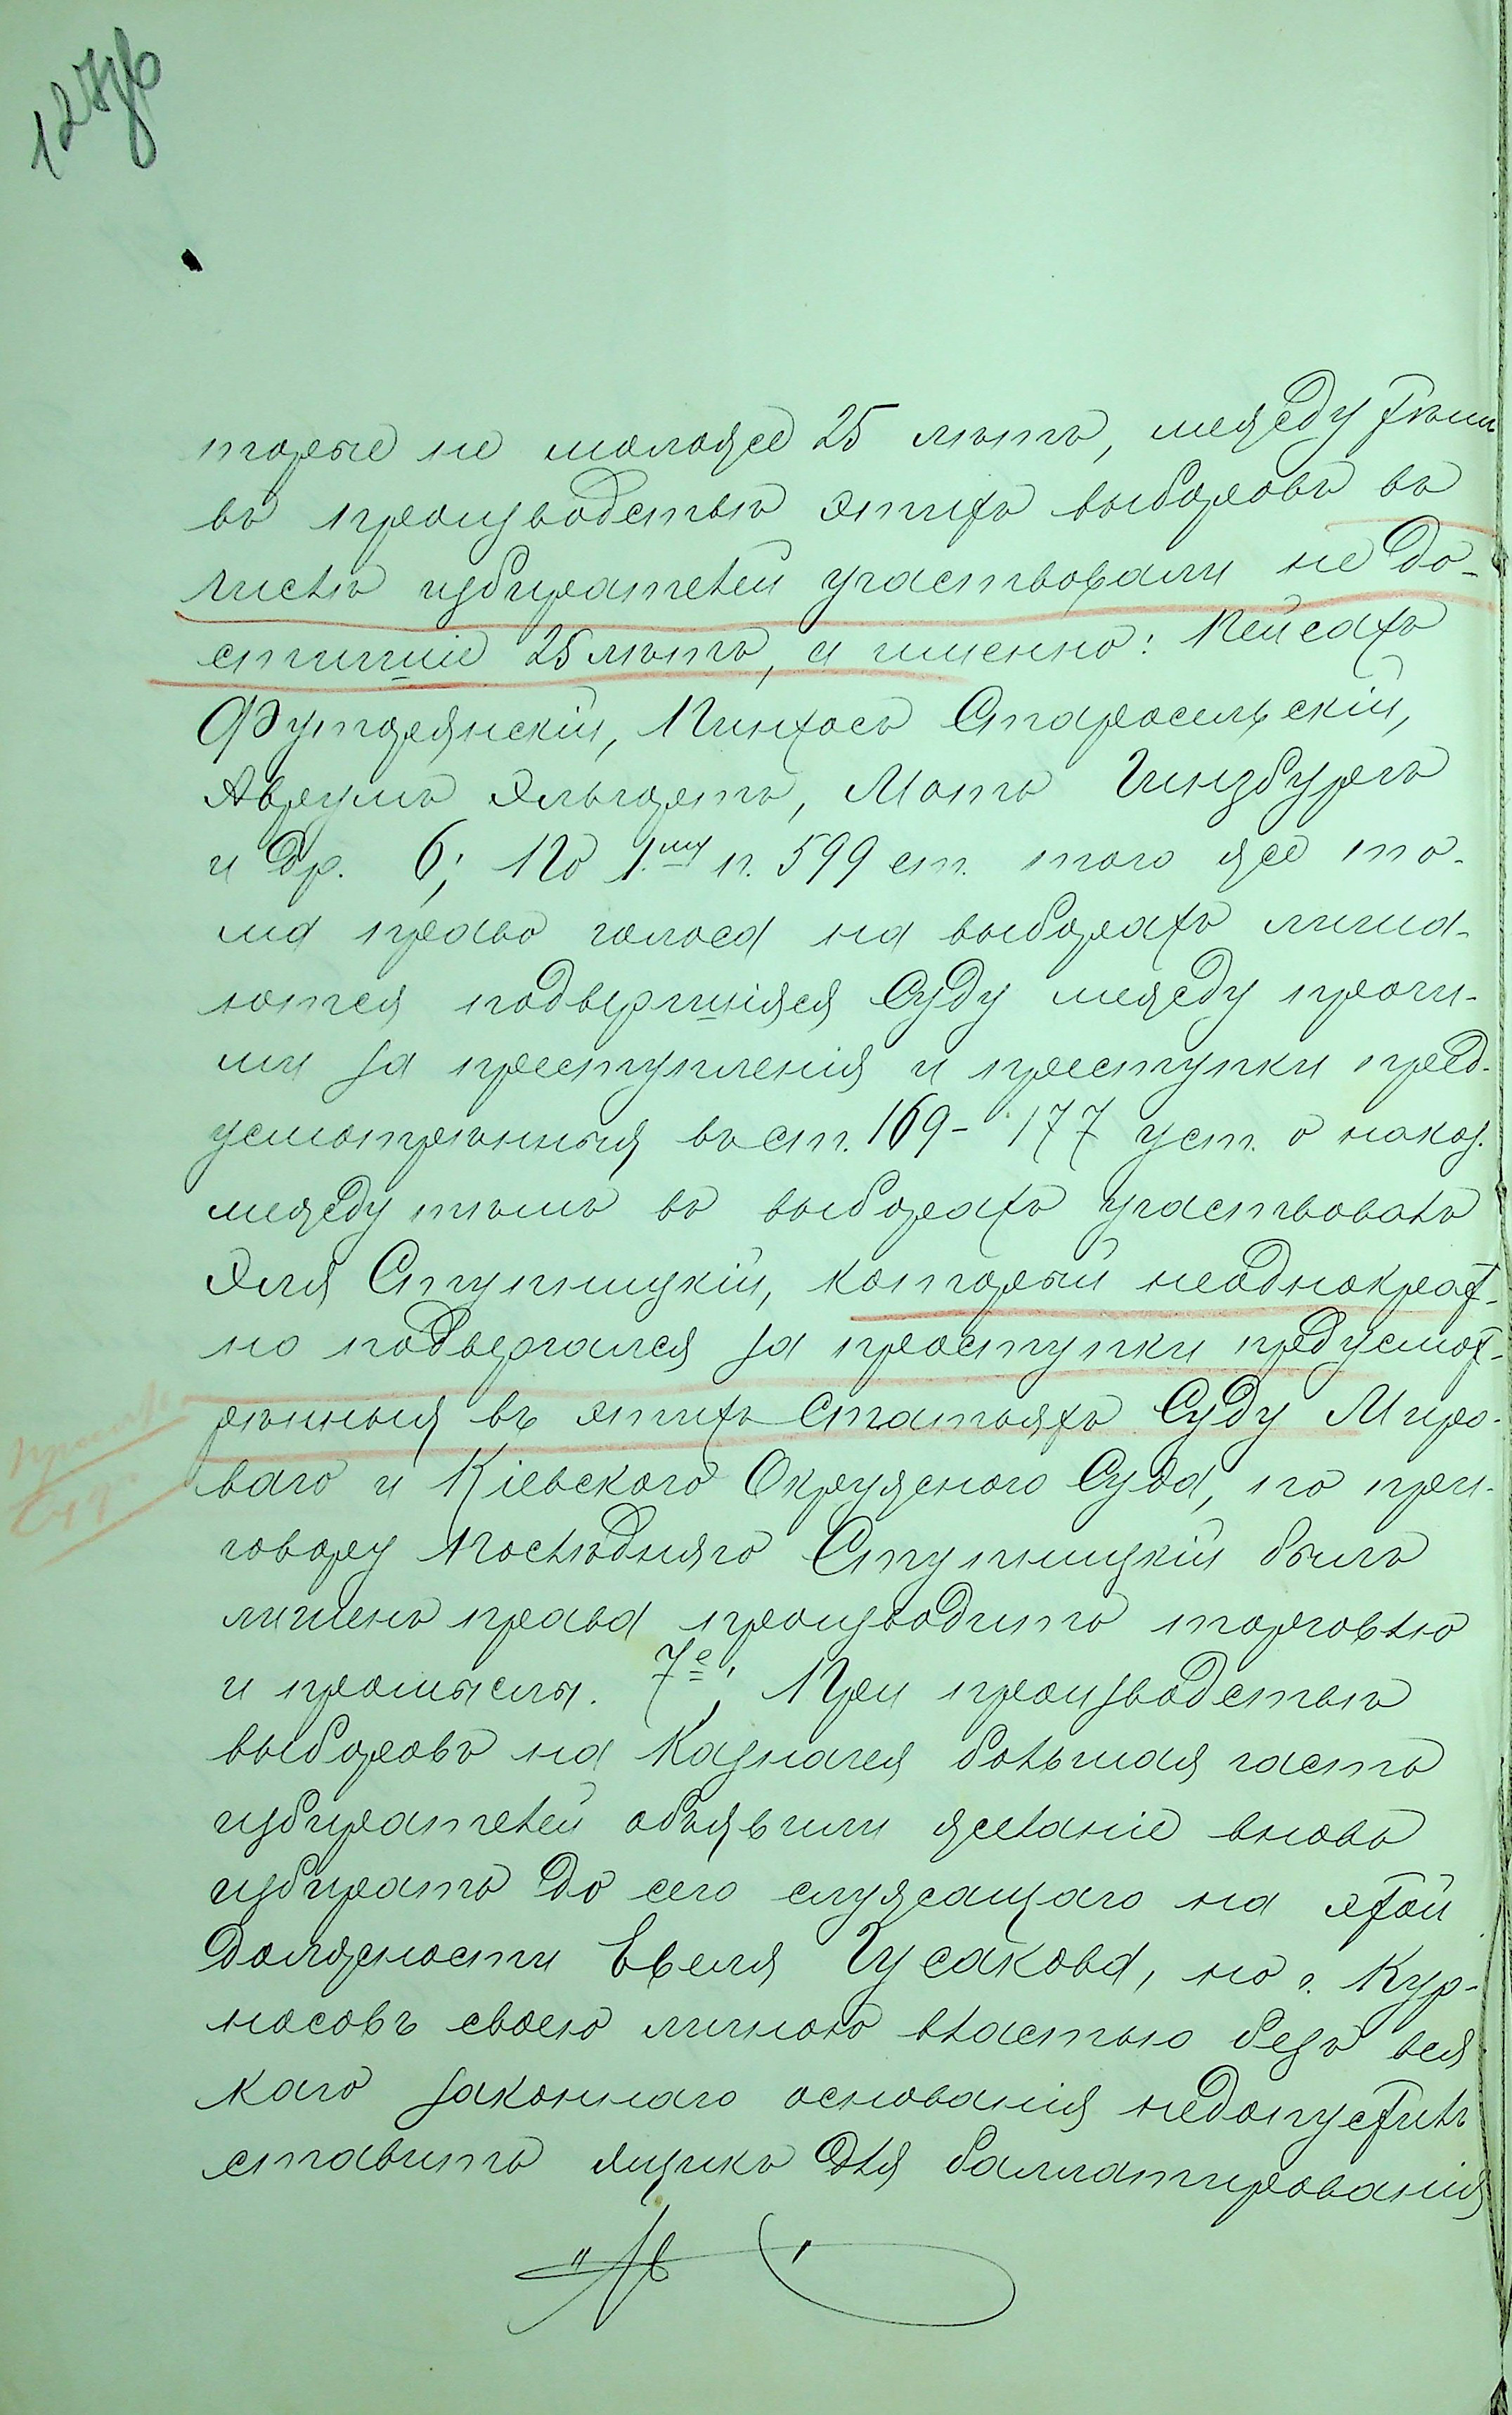 127об
торые не моложе 25 лѣтъ, между тѣмъ
въ производствѣ этихъ выборовъ въ
числѣ избирателей участвовали не до-
стигшіе 25 лѣтъ, а именно: Пейсахъ
Футорянскій, Пинхосъ Старосельскій,
Аврумъ Эльгортъ, Мотъ Гинзбургъ
и др. 6; По 1му п. 599 ст. того же то-
ма право голоса на выборахъ лиша-
ются подвергшіяся Суду между прочи-
ми за преступленія и проступки пред-
усмотрѣнныя въ ст. 169-177 уст. о наказ.
между тѣмъ въ выборахъ участвовалъ
Эля Ступницкій, который неоднократ-
но подвергался за проступки предусмот-
рѣнныя въ этихъ Статьяхъ Суду Миро-
ваго и Кіевского Окружного Суда, по при-
говору Послѣдняго Ступницкій былъ
лишенъ права производить торговлю
и промыслы. 7е; При производствѣ
выборовъ на Казначея большая часть
избирателей объявили желаніе вновь
избирать до сего служащаго на этой
должности Евеля Гусакова, но г. Кур-
носовъ своею личною властью безъ вся
каго законнаго основанія недопустилъ
ставить ящикъ для баллатированія